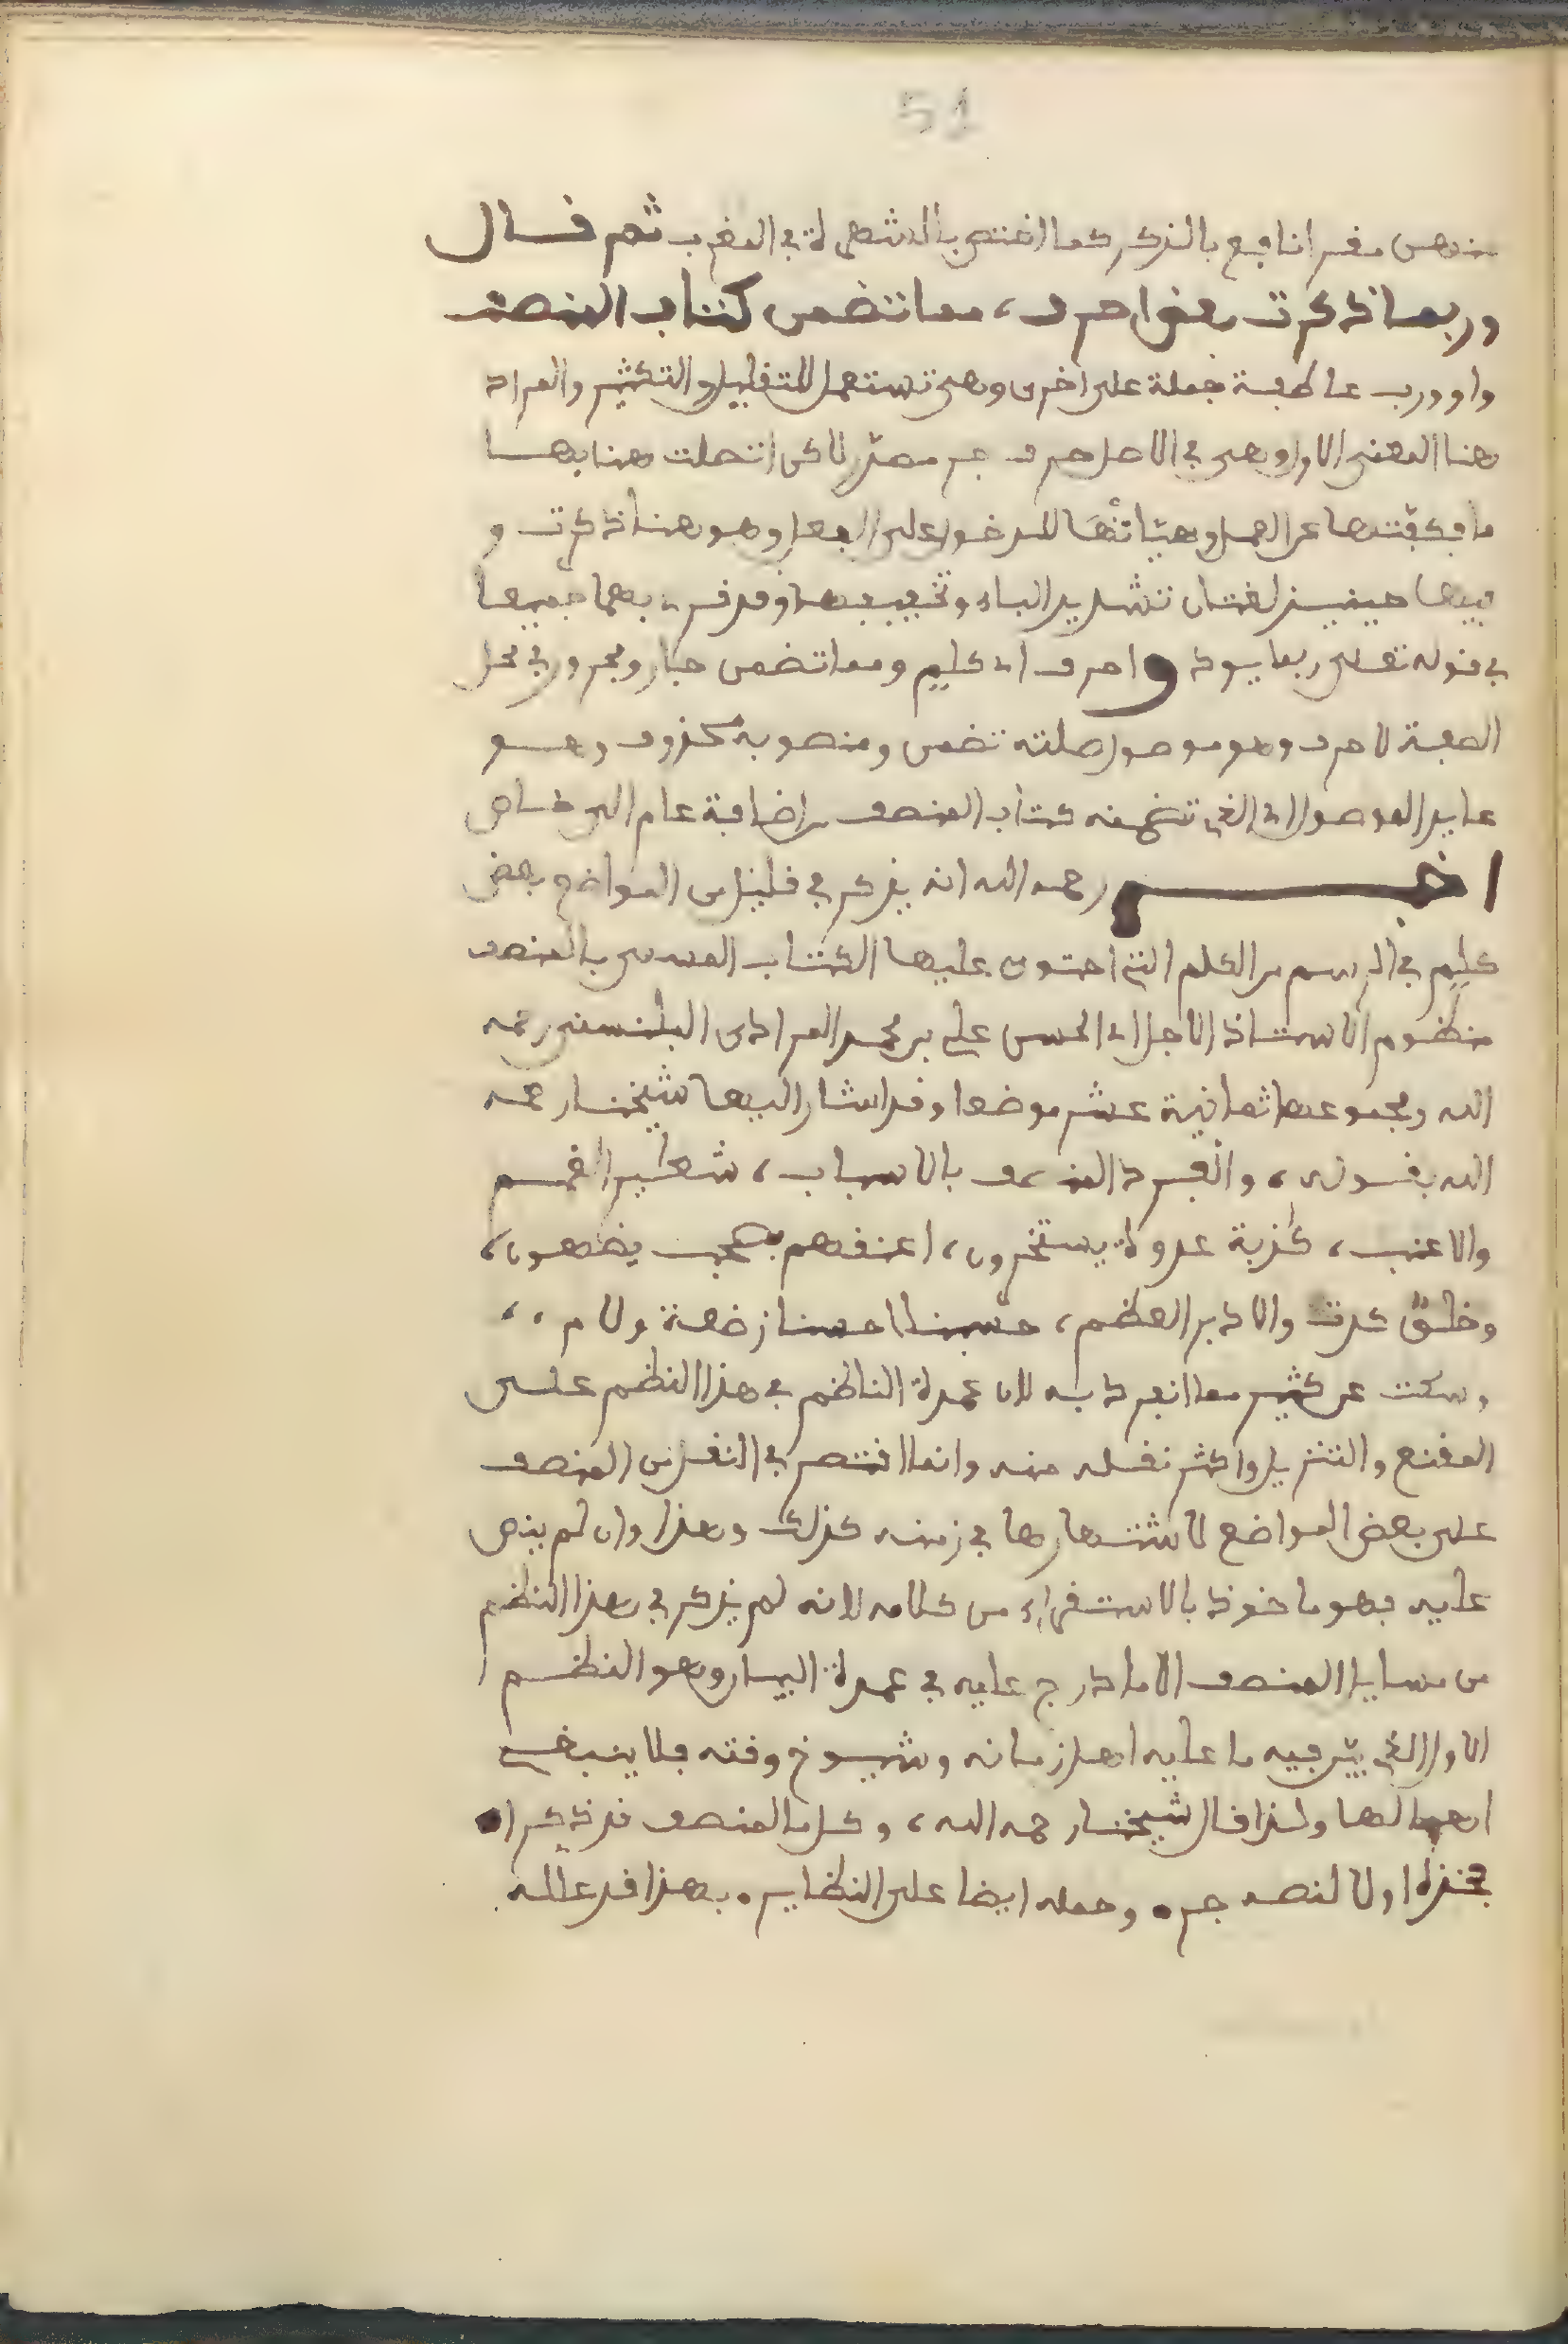 51
منهن مقرا نافع بالذكر كما اختص بالشهرة في المغرب ثم قال
وربما ذكرت بعض احرف، مما تضمن كتاب المنصف
واو ورب عاطفة جملة على اخرى وهي تستعمل للتقليل والتكثير والمراد
هنا المعنى الاول وهي في الاصل حرف جر مصدر لاكن اتصلت هنا بها
ما فكفتها عن العمل وهيأتها للدخول على الفعل وهو هنا ذكرت و
فيها حينيذ لغتان تشديد الباء وتخفيفها وقد قرء بهما جميعا
في قوله تعلى ربما يود واحرف اي كلم ومما تضمن جار ومجرور في محل
الصفة لاحرف وهو موصول صلته تضمن ومنصوبه محذوف وهو
عايد الموصول اي الذي تضمنه كتاب المنصف من اضافة عام الى خاص
اخبر رحمه الله انه يذكر في قليل من المواضع بعض
كلم في الرسم من الكلم التي احتوى عليها الكتاب المسمى بالمنصف
منظوم الاستاذ الاجل ابي الحسن علي بن محمد المرادي البلنسي رحمه
الله ومجموعها ثمانية عشر موضعا وقد اشار اليها شيخنا رحمه
الله بقوله، وانفرد المنصف بالاسباب، شعاير الغمم
والاعنب، كذبة عدوة يستخرون، اعنقهم يصحب يضهون،
وخلق كدت والادبر العظم، حسبنا احسنا رضعة ولام،،
وسكت عن كثير مما انفرد به لان عمدة الناظم في هذا النظم على
المقنع والتنزيل واكثر نقله منه وانما اقتصر في النقل من المنصف
على بعض المواضع لاشتهارها في زمنه كذلك وهذا وان لم ينص
عليه فهو ماخوذ بالاستقراء من كلامه لانه لم يذكر في هذا النظم
من مسايل المنصف الا ما درج عليه في عمدة البيان وهو النظم
الاول الذي بين فيه ما عليه اهل زمانه وشيوخ وقته فلا ينبغي
اهمالها ولذا قال شيخنا رحمه الله، وكل ما لمنصف قد ذكرا
فخذه اولا لنصه جر • وحمله ايضا على النظاير • بهذا قد علله